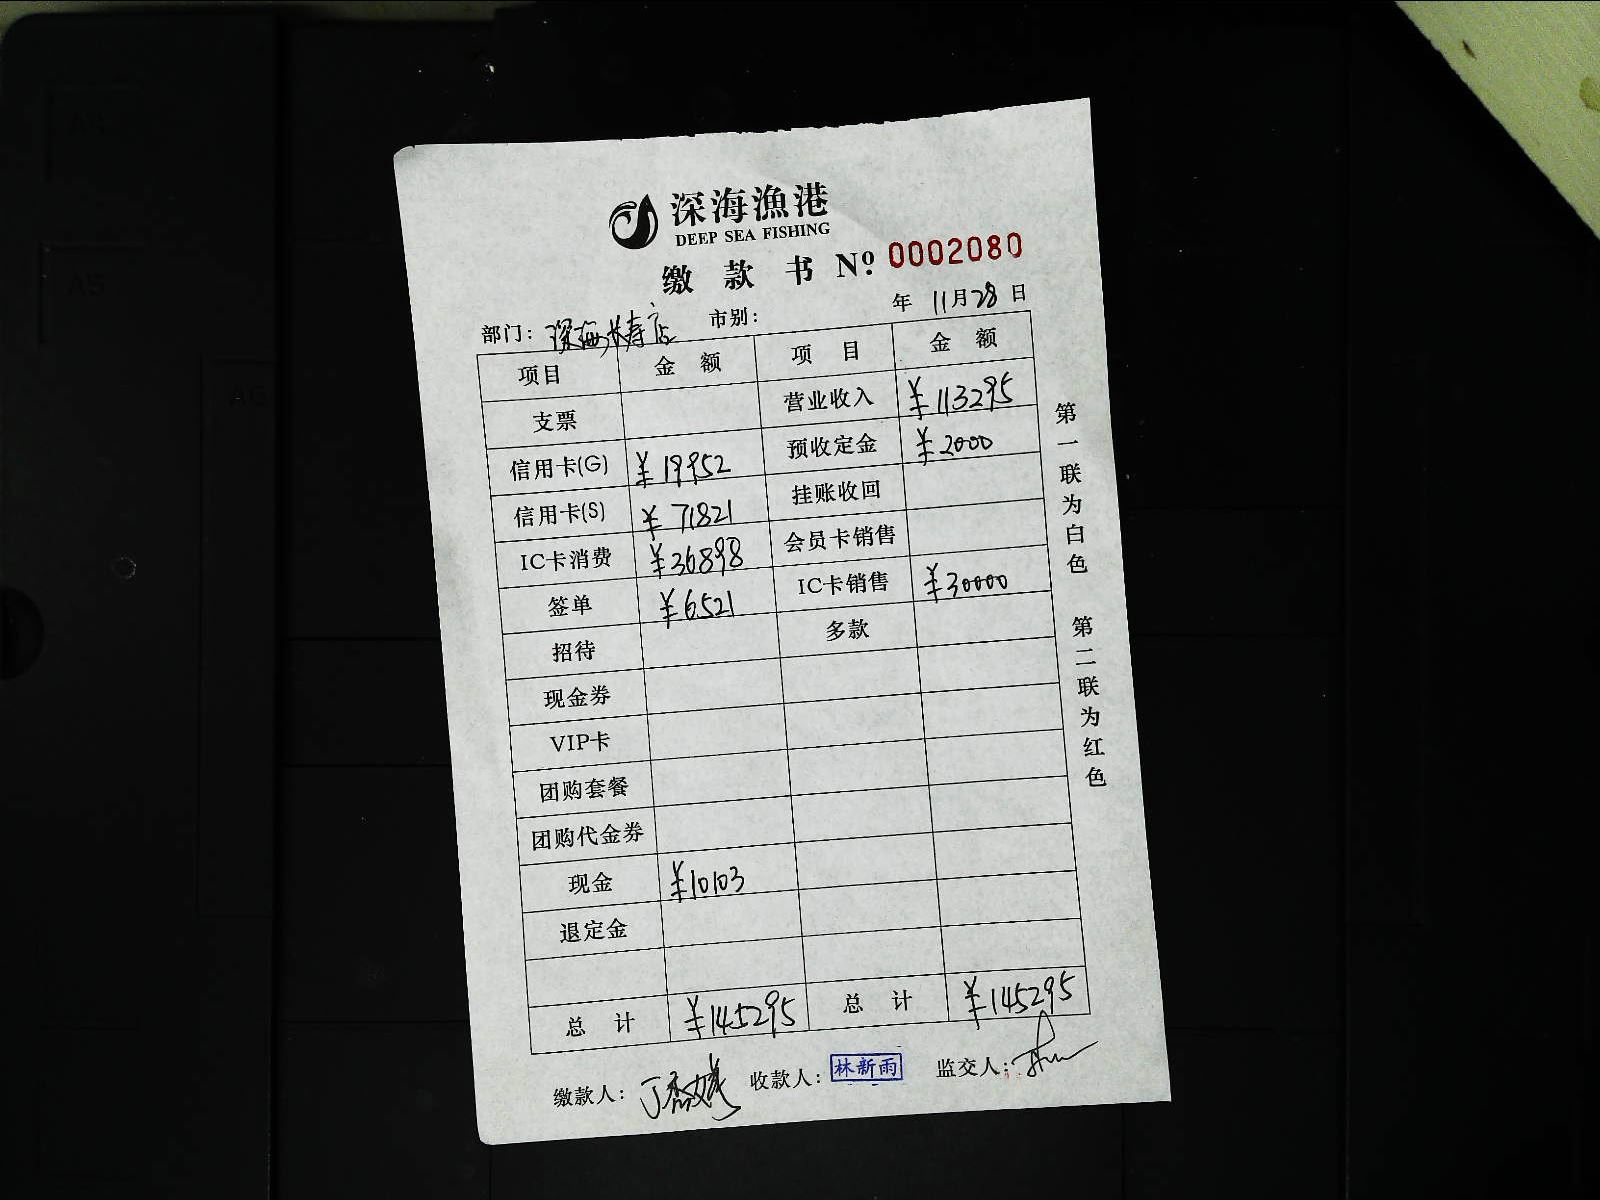 深海漁港
DEEP SEA FISHING
缴款书 Nº 0002080
部门: 深海长寿店 市别: 年 11月28日
项目 金额 项目 金额
支票 营业收入 ¥113295
信用卡(G) ¥19952 预收定金 ¥2000
信用卡(S) ¥71821 挂账收回
IC卡消费 ¥36898 会员卡销售
签单 ¥6521 IC卡销售 ¥30000
招待 多款
现金券
VIP卡
团购套餐
团购代金券
现金 ¥10103
退定金
总计 ¥145295 总计 ¥145295
缴款人: 收款人: 林新雨 监交人:
第一联为白色 第二联为红色